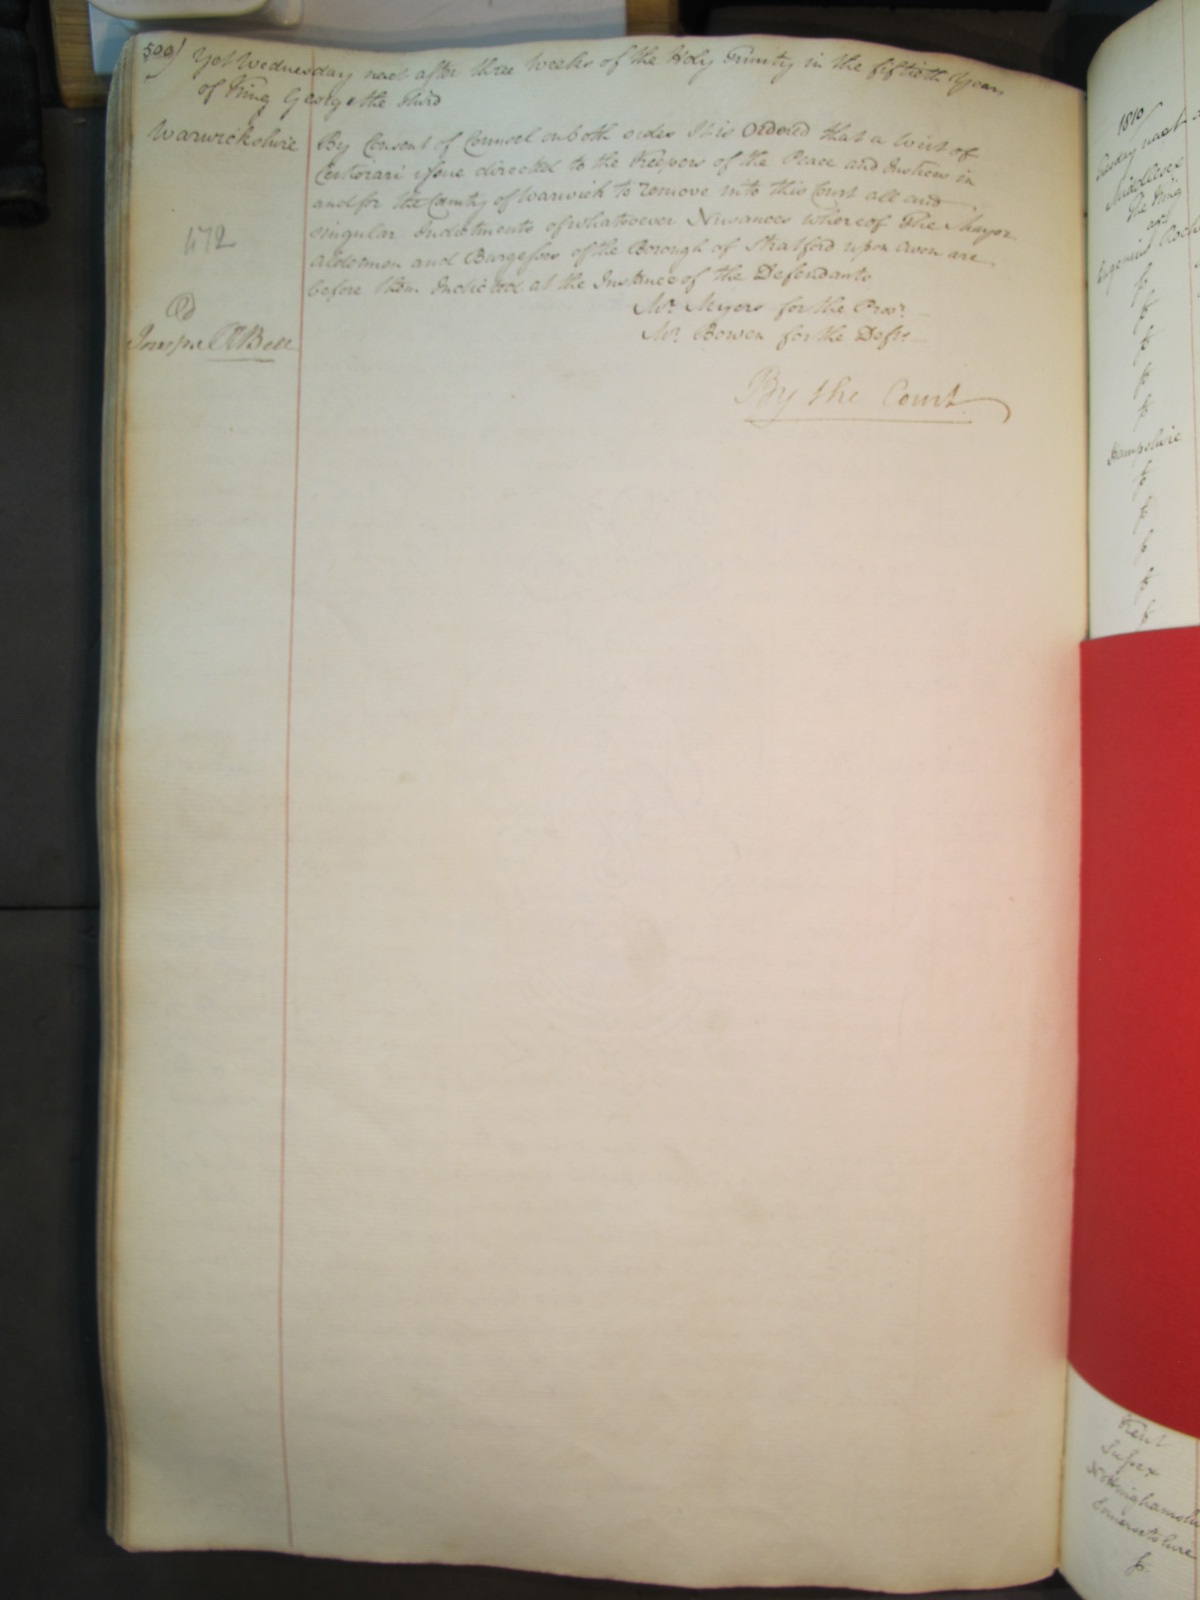 500) Yet Wednesday next after three Weeks of the Holy Trinity in the fiftieth Year
of King George the Third
Warwickshire
By Consent of Counsel on both sides It is Ordered that a Writ of
Certiorari issue directed to the Keepers of the Peace and Justices in
and for the County of Warwick to remove into this Court all and
singular Indictments of whatsoever Nusances whereof The Mayor
Aldermen and Burgesses of the Borough of Stratford upon Avon are
before them Indicted at the Instance of the Defendants
Mr. Myers for the Pros.r
Mr. Bowen for the Defts.
By the Court
472
1810
next
Middlesex
The King
agt
Hampshire
Kent
Sussex
Nottinghamsh
Somersetshire